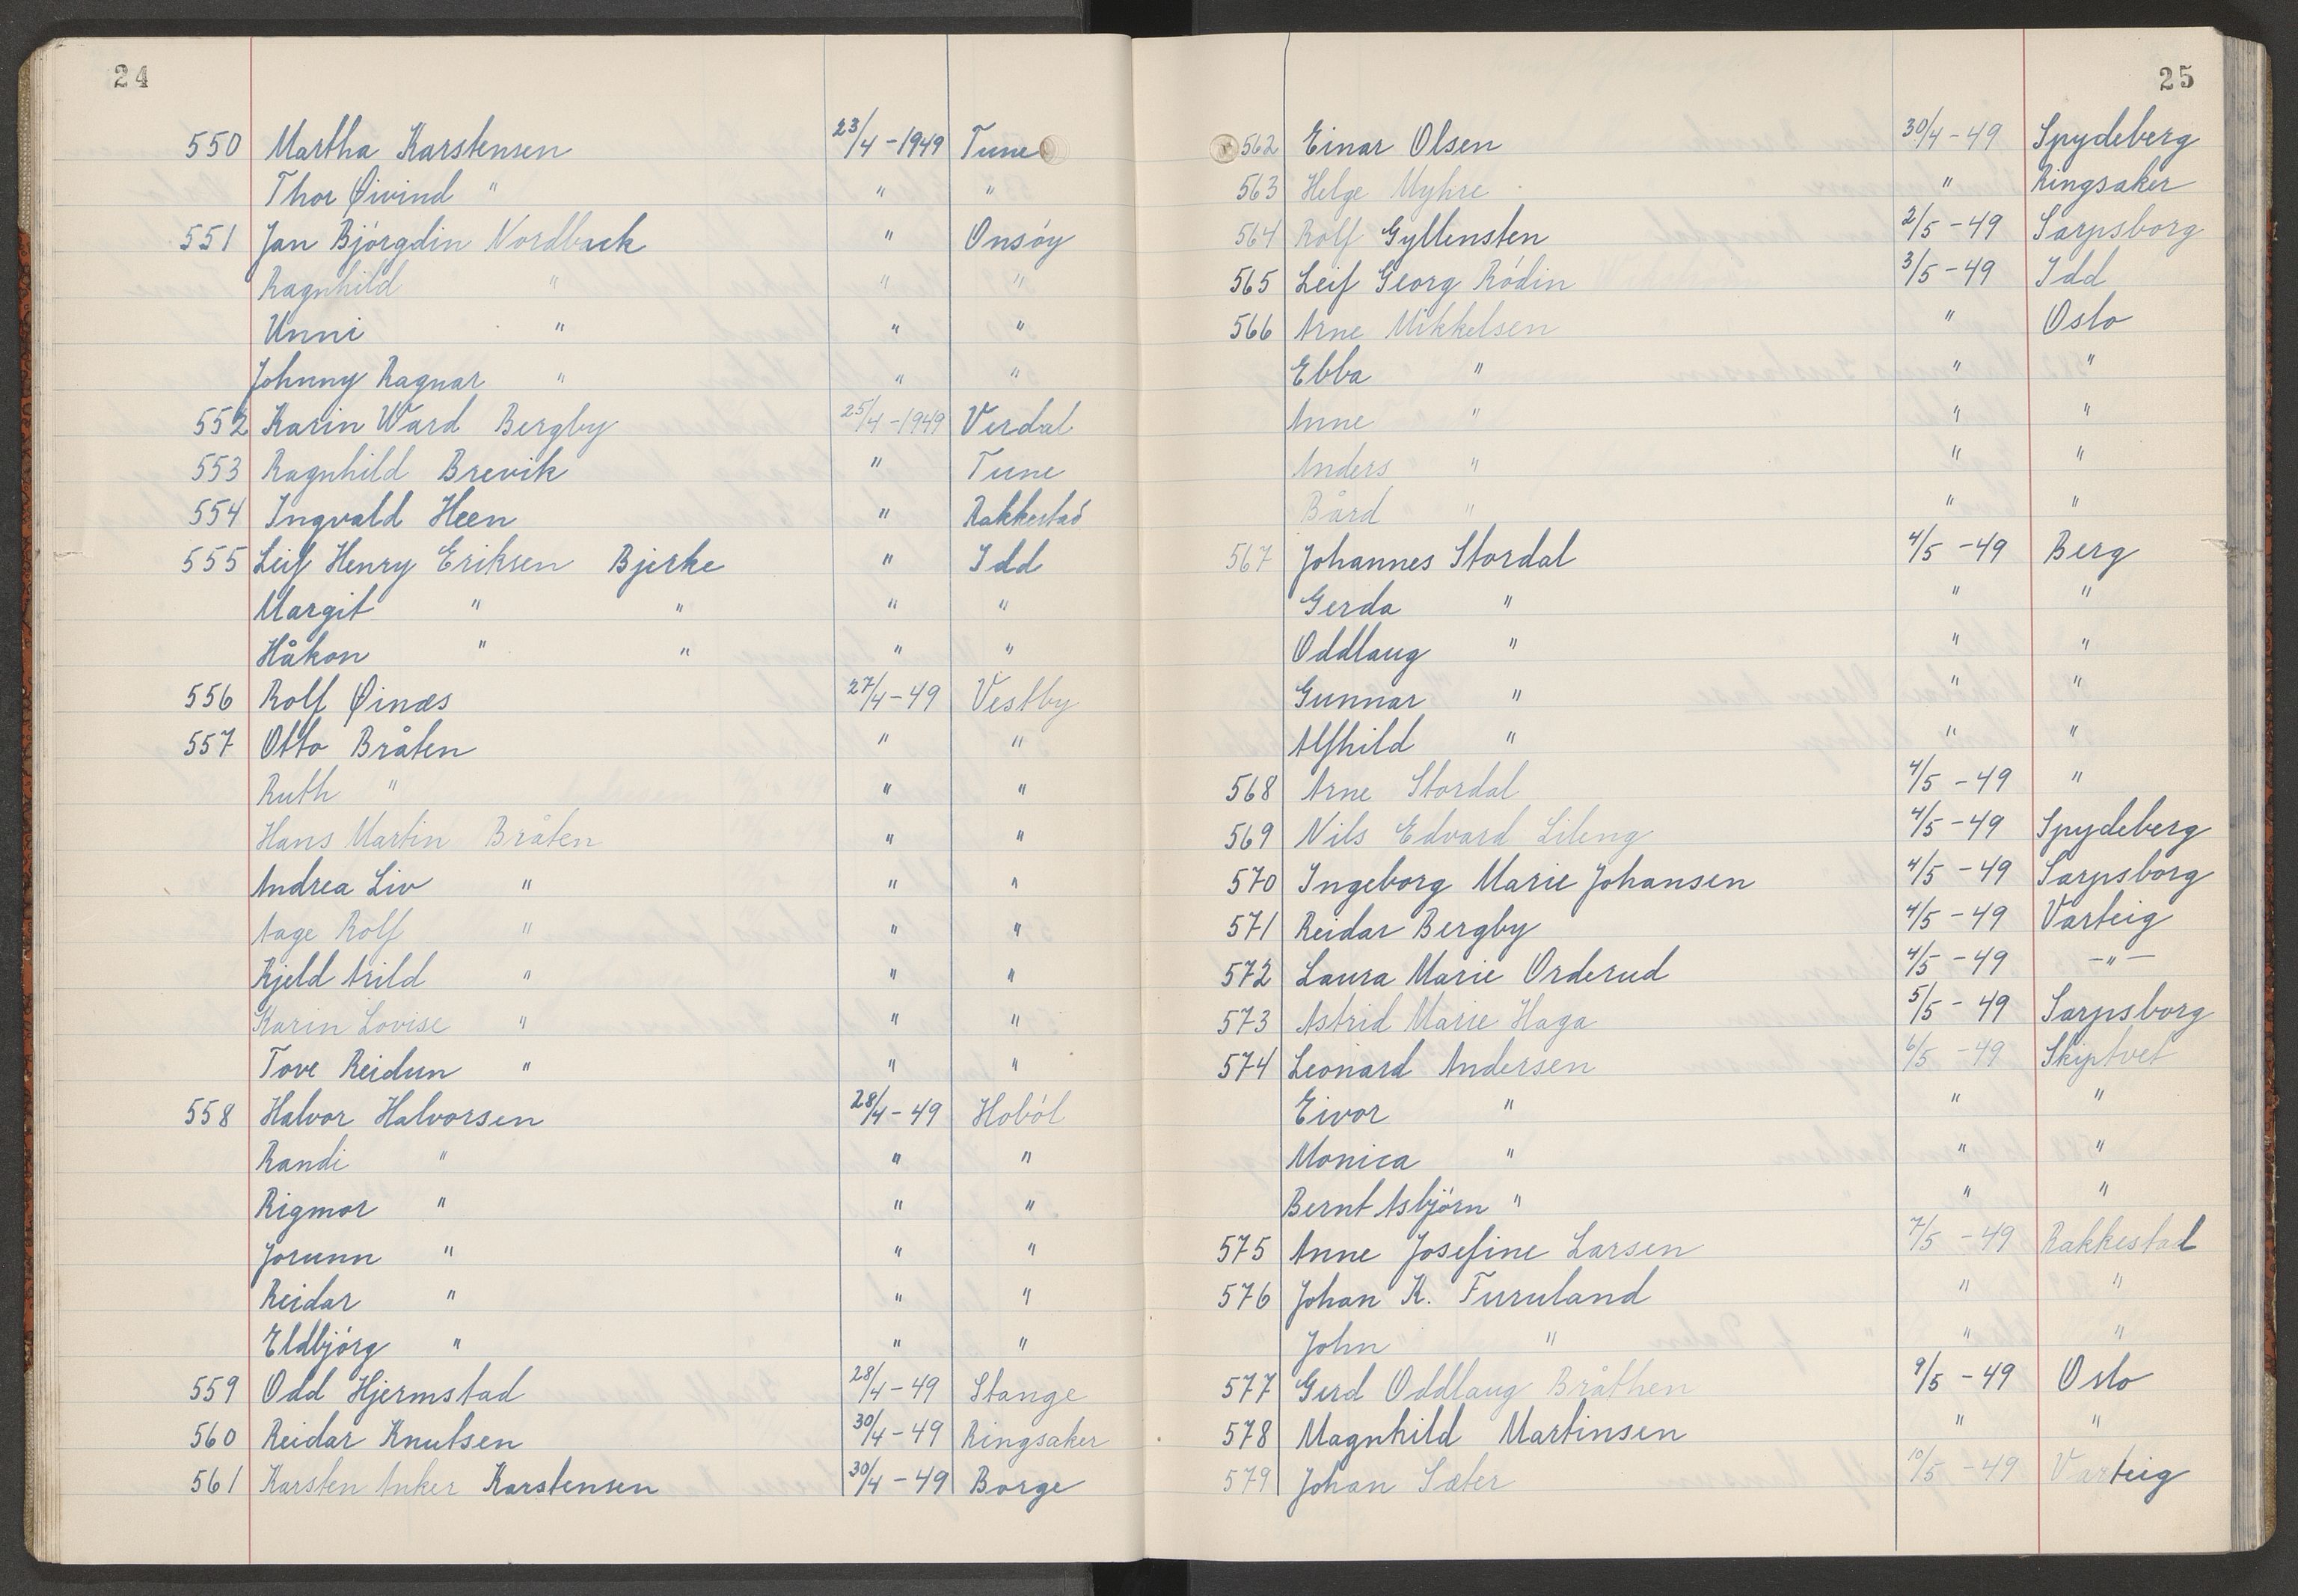 24
550 Martha Karstensen 23/4-1949 Tune
Thor Øivind " " "
551 Jan Bjórgdin Nordback " Onsóy
Ragnhild " " "
Unni " " "
Johnny Ragnar " " "
552 Karin Ward Bergby 25/4-1949 Verdal
553 Ragnhild Brevik " Tune
554 Ingvald Heen " Rakkestad
555 Leif Henry Eriksen Bjerke " Idd
Margit " " " "
Håkon " " " "
556 Rolf Øinæs 27/4-49 Vestby
557 Otto Bråten " "
Ruth " " "
Hans Martin Bråten " "
Andrea Liv " " "
Aage Rolf " " "
Kjeld Arild " " "
Karin Lovise " " "
Tove Reidun " " "
558 Halvor Halvorsen 28/4-49 Hoból
Randi " " "
Rigmor " " "
Jorunn " " "
Reidar " " "
Eldbjórg " " "
559 Odd Hjermstad 28/4-49 Stange
560 Reidar Knutsen 30/4-49 Ringsaker
561 Karsten Anker Karstensen 30/4-49 Borge
25
562 Einar Olsen 30/4-49 Spydeberg
563 Helge Myhre " Ringsaker
564 Rolf Gyllensten 2/5-49 Sarpsborg
565 Leif Georg Ródin 3/5-49 Idd
566 Arne Mikkelsen " Oslo
Ebba " " "
Anne " " "
Anders " " "
Bård " " "
567 Johannes Stordal 4/5-49 Berg
Gerda " " "
Oddlaug " " "
Gunnar " " "
Alfhild " " "
568 Arne Stordal 4/5-49 "
569 Nils Edvard Lileng 4/5-49 Spydeberg
570 Ingeborg Marie Johansen 4/5-49 Sarpsborg
571 Reidar Bergby 4/5-49 Varteig
572 Laura Marie Orderud 4/5-49 -"-
573 Astrid Marie Haga 5/5-49 Sarpsborg
574 Leonard Andersen 6/5-49 Skiptvet
Eivor " " "
Monica " " "
Bernt Asbjórn " " "
575 Anne Josefine Larsen 7/5-49 Rakkestad
576 Johan K. Furuland " "
John " " "
577 Gerd Oddlaug Bråthen 9/5-49 Oslo
578 Magnhild Martinsen " "
579 Johan Sæter 10/5-49 Varteig